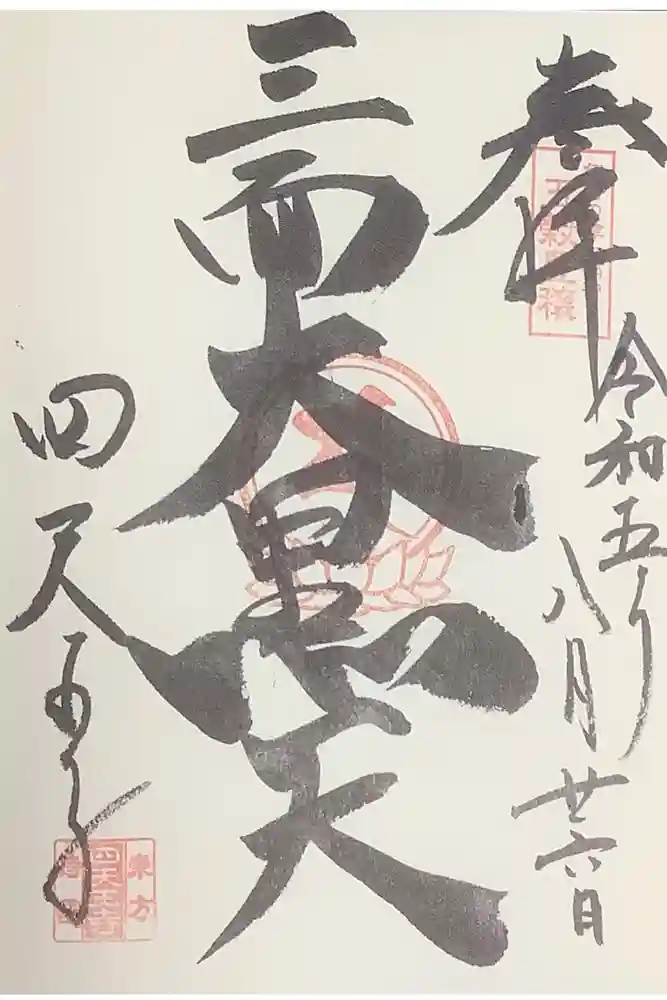 奉拝
令和五年
八月廿六日
三面大黒天
四天王寺
東方